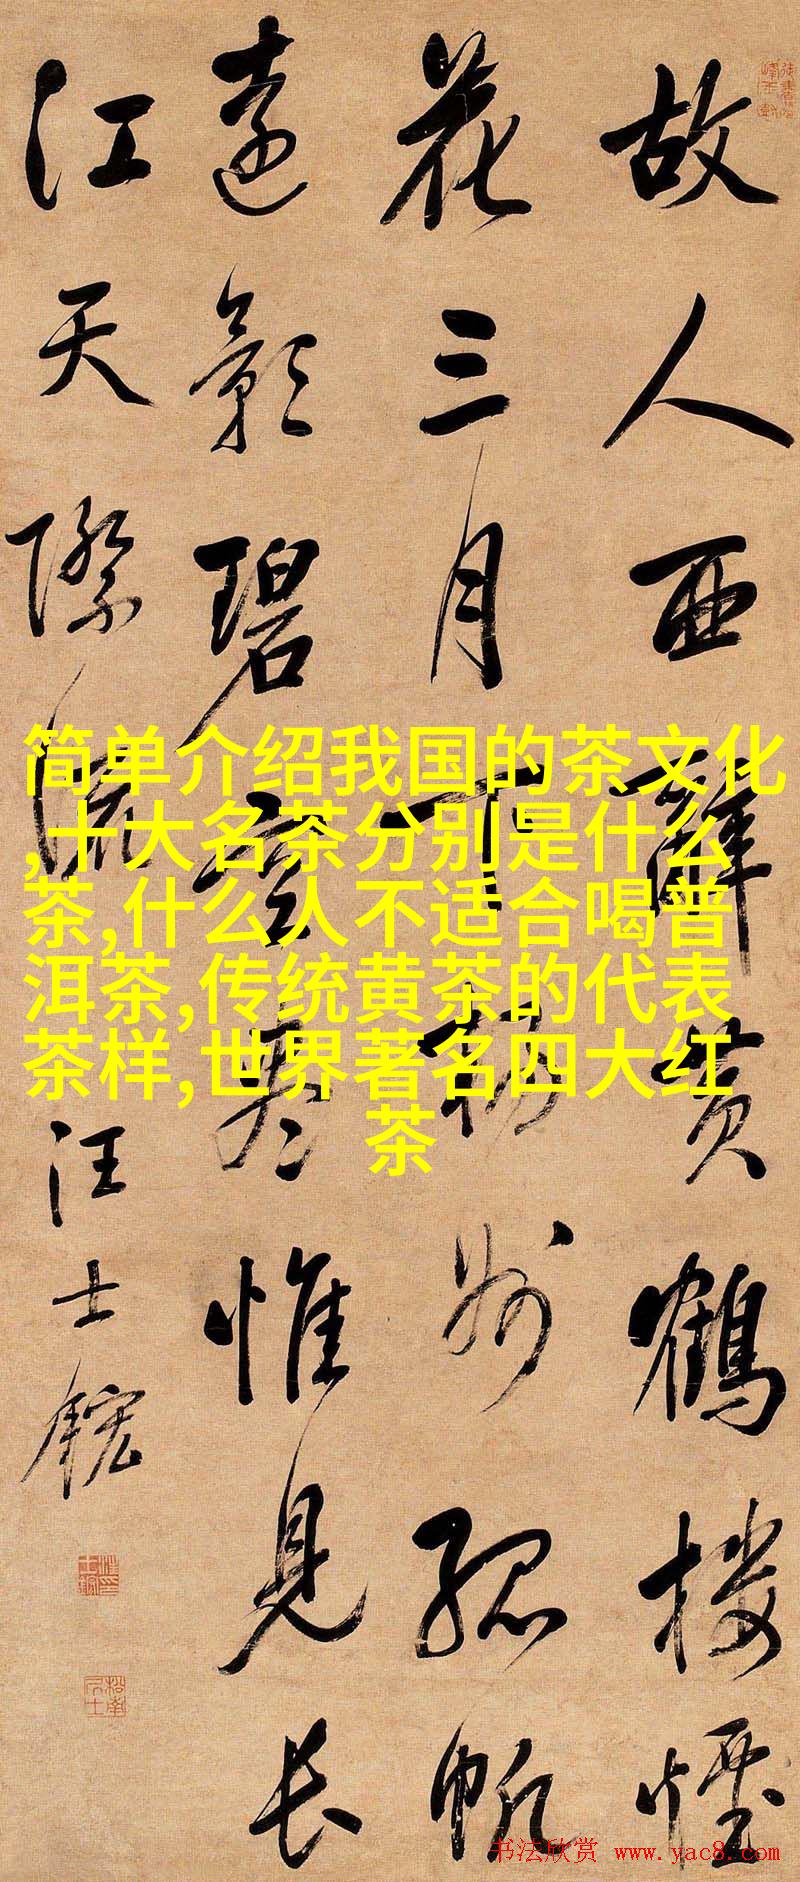 故人西辭黄鶴樓煙
花三月下揚州孤帆
遠影碧空盡惟見长
江天際流 汪士鋐
简单介绍我国的茶文化
,十大名茶分别是什么
茶,什么人不适合喝普
洱茶,传统黄茶的代表
茶样,世界著名四大红
茶
书法欣赏 www.yac8.com